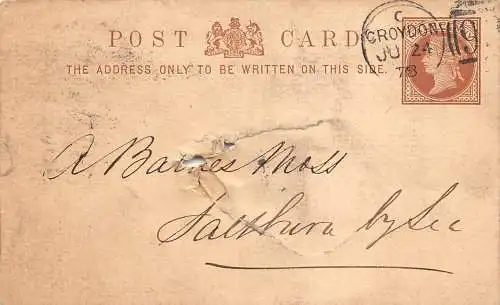 POST CARD
THE ADDRESS ONLY TO BE WRITTEN ON THIS SIDE.
C
CROYDON
JU 24
78
R. Barnes Moss
Saltburn by Sea